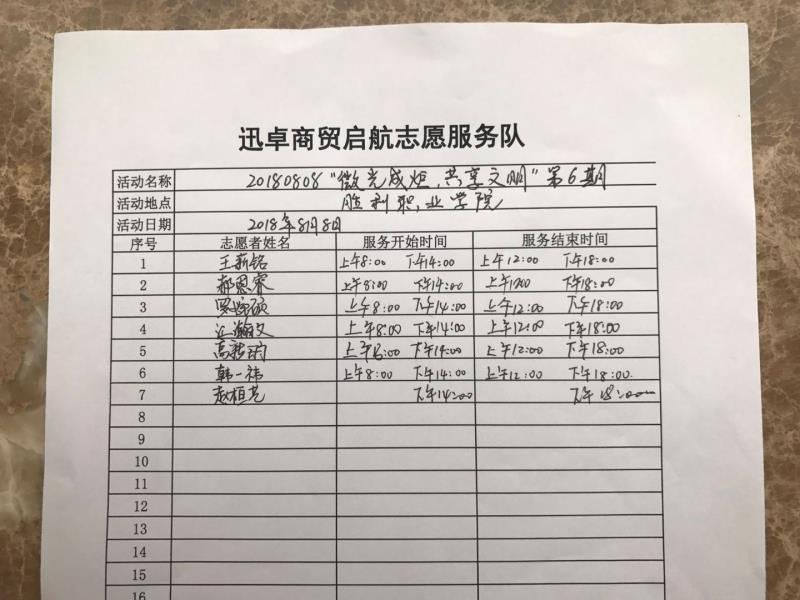 迅卓商贸启航志愿服务队
活动名称 20180808“微光成炬,共享文明”第6期
活动地点 胜利职业学院
活动日期 2018年8月8日
序号 志愿者姓名 服务开始时间 服务结束时间
1 王新铭 上午8:00 下午14:00 上午12:00 下午18:00
2 郝恩睿 上午8:00 下午14:00 上午1200 下午18:00
3 上午8:00 下午14:00 上午12:00 下午18:00
4 江瀚文 上午8:00 下午14:00 上午12:00 下午18:00
5 上午8:00 下午14:00 上午12:00 下午18:00
6 韩一祎 上午8:00 下午14:00 上午12:00 下午18:00.
7 赵桓艺 下午14:00 下午18:00
8
9
10
11
12
13
14
15
16